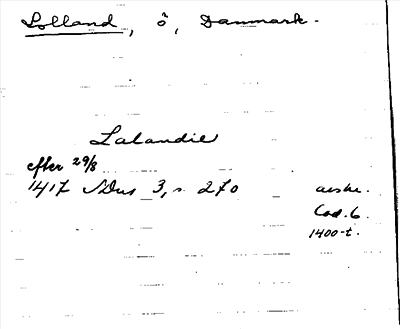 Lolland, ö, Danmark.
Lalandie
efter 29/8
1417 SDns 3, s. 270 avskr.
Cod. 6.
1400-t.